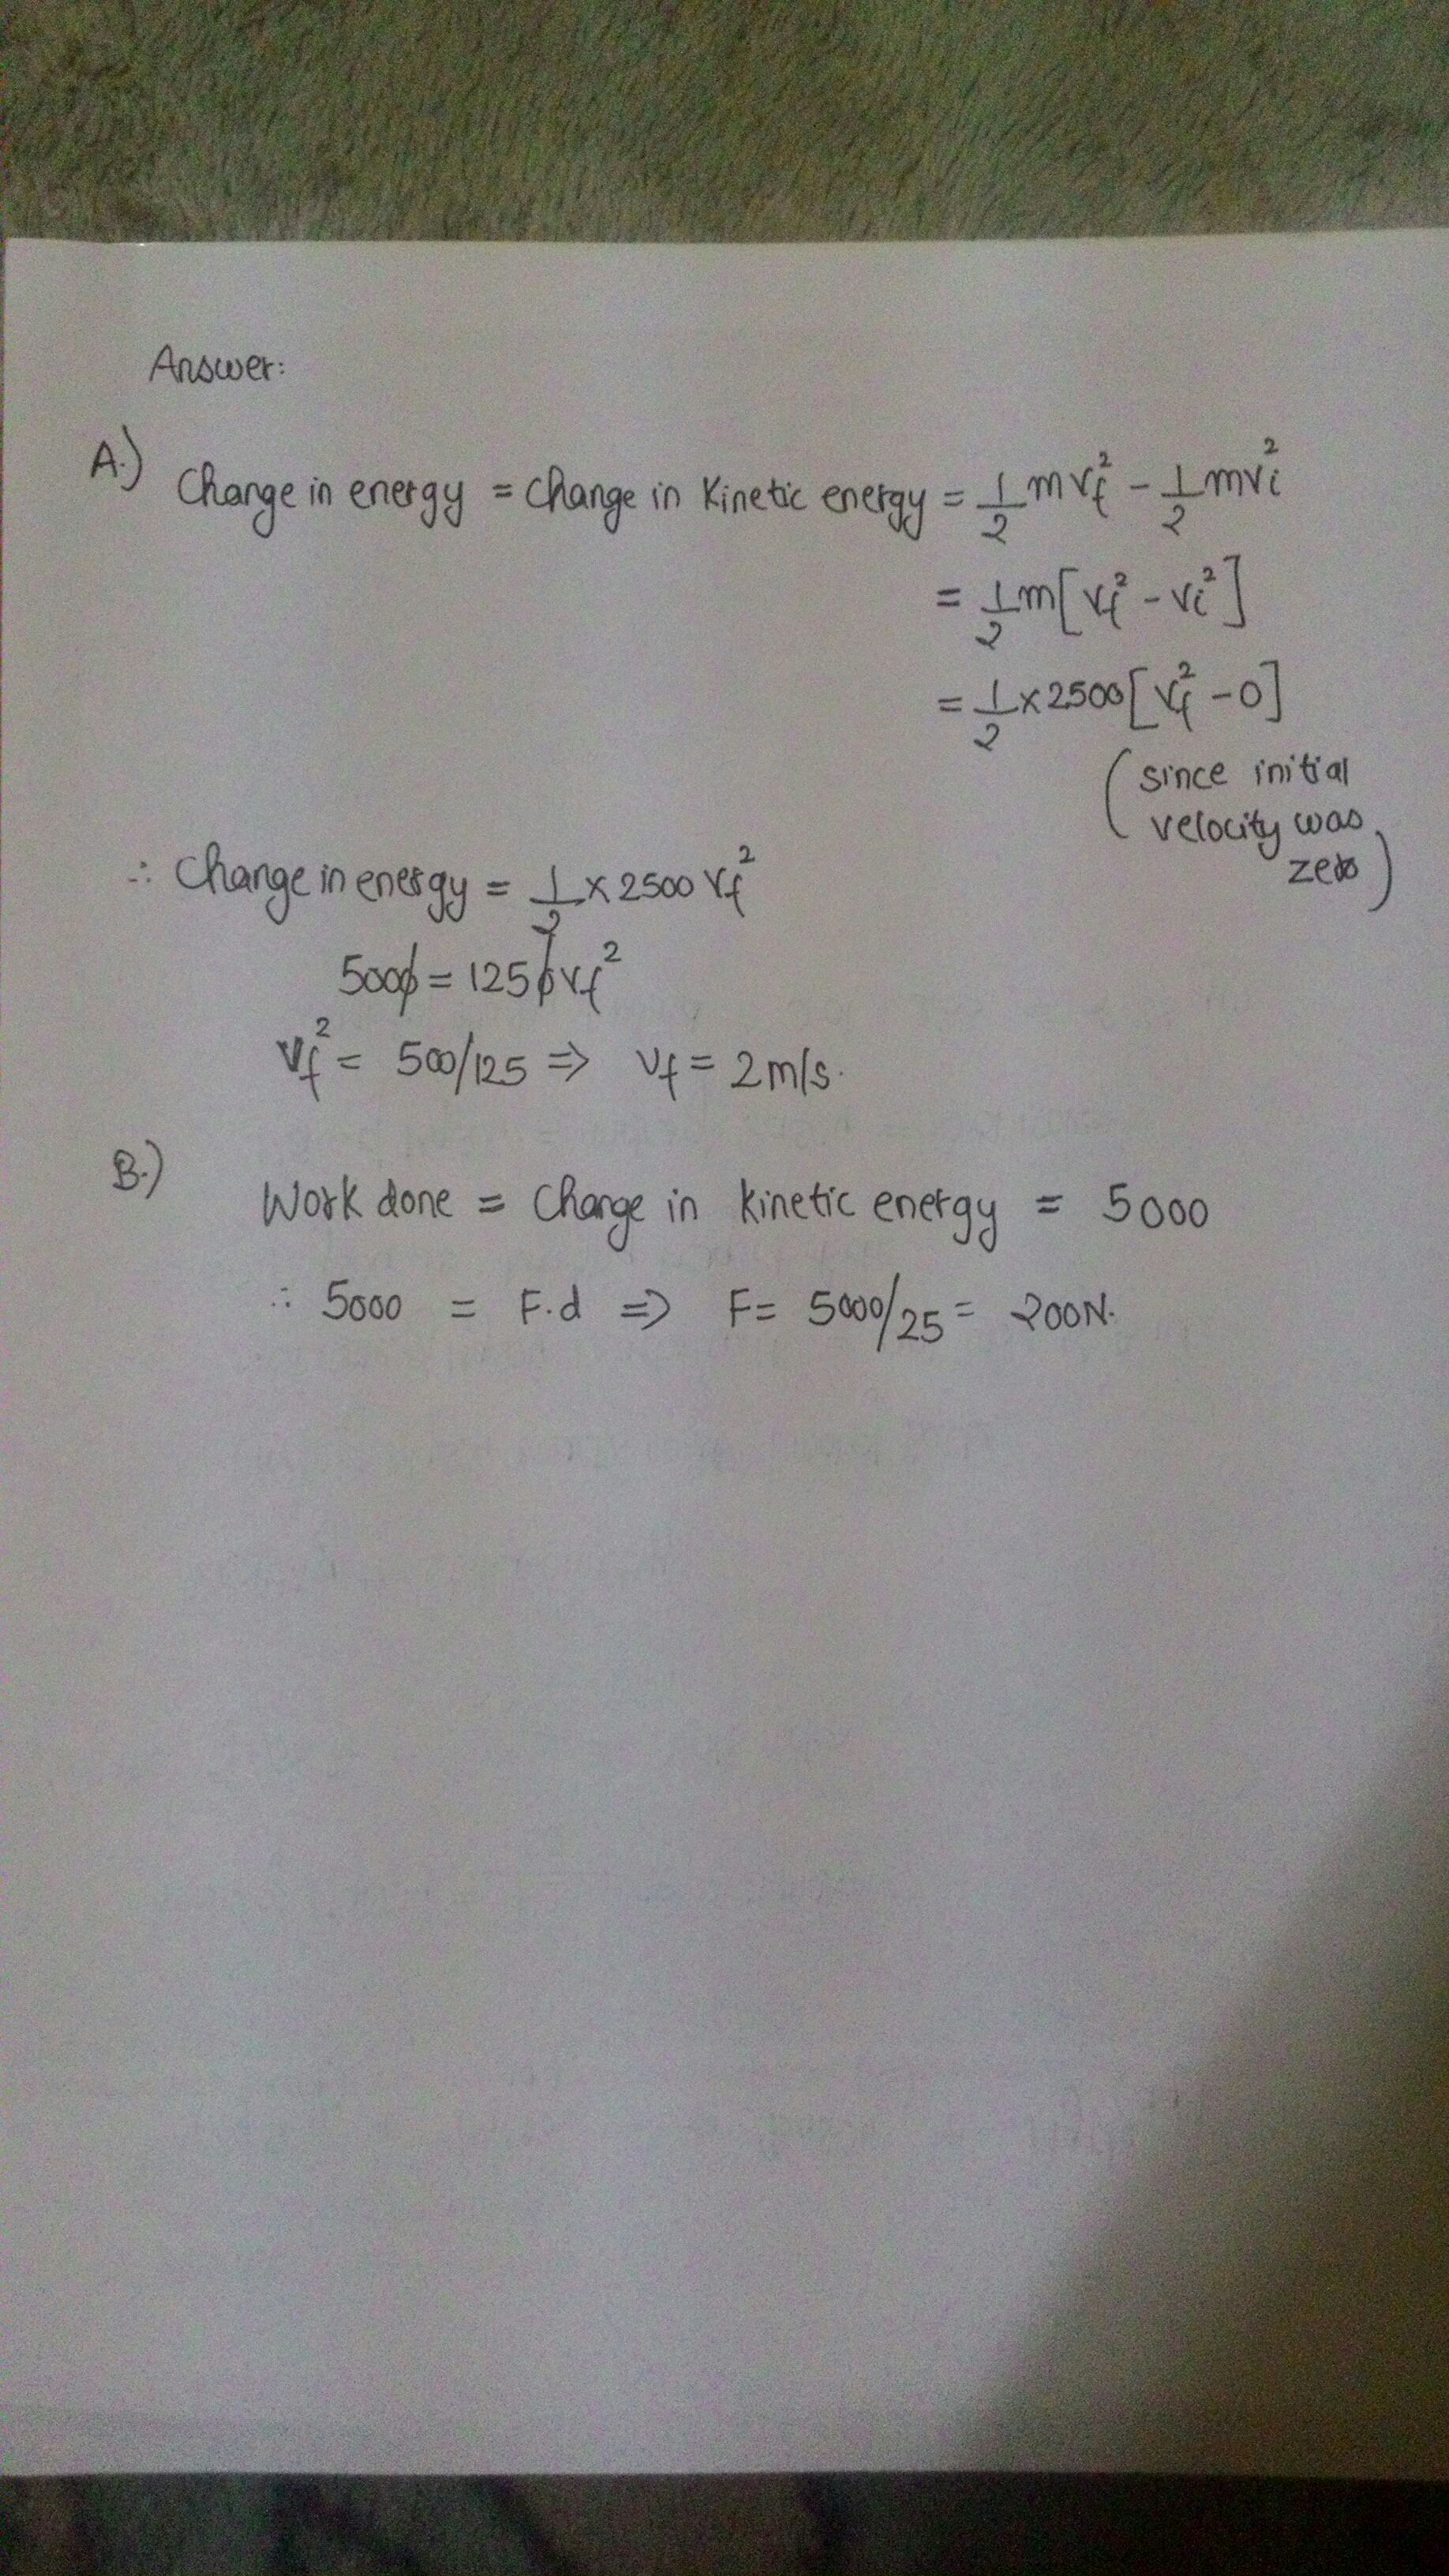 Answer:
A.) Change in energy = Change in Kinetic energy = 1/2 mvf² - 1/2 mvi²
= 1/2 m[vf² - vi²]
= 1/2 × 2500[vf² - 0]
(since initial
velocity was
zero)
∴ Change in energy = 1/2 × 2500 vf²
5000 = 1250 vf²
vf² = 500/125 ⇒ vf = 2m/s.
B.) Work done = Change in kinetic energy = 5000
∴ 5000 = F.d ⇒ F = 5000/25 = 200N.